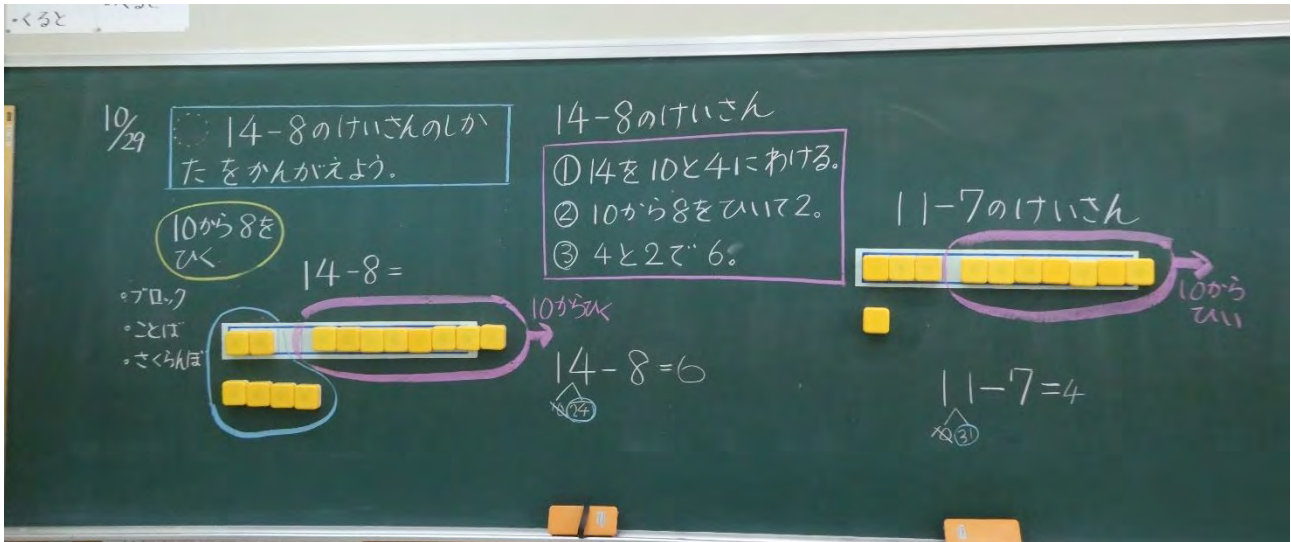 ・くると
10/29
14-8のけいさんのしか
たをかんがえよう。
10から8を
ひく
・ブロック
・ことば
・さくらんぼ
14-8=
10からひく
14-8のけいさん
①14を10と4にわける。
②10から8をひいて2。
③4と2で6。
14-8=6
10 24
11-7のけいさん
10から
ひい
11-7=4
10 31